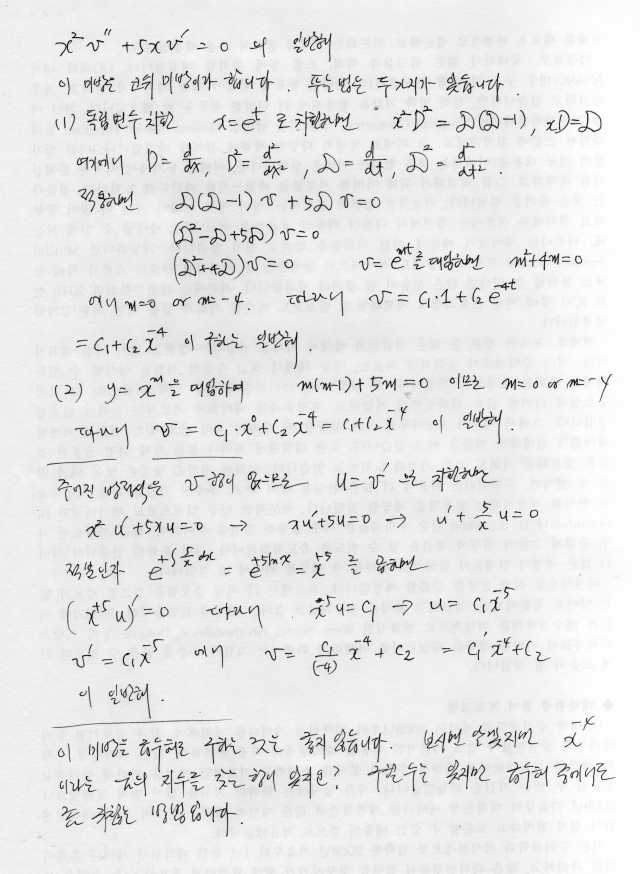 x² v'' + 5x v' = 0 의 일반해
이 미방은 코쉬 미방이라 합니다. 푸는 법은 두 가지가 있습니다.
(1) 독립변수 치환 x = e^t 로 치환하면 x²D² = 𝒟(𝒟-1), xD = 𝒟
여기에서 D = d/dx, D² = d²/dx², 𝒟 = d/dt, 𝒟² = d²/dt².
적용하면 𝒟(𝒟-1) v + 5𝒟 v = 0
(𝒟²-𝒟+5𝒟) v = 0
(𝒟²+4𝒟) v = 0 v = e^{mt} 를 대입하면 m²+4m = 0
에서 m=0 or m=-4. 따라서 v = c₁·1 + c₂ e^{-4t}
= c₁ + c₂ x^{-4} 이 구하는 일반해.
(2) y = x^m 을 대입하여 m(m-1) + 5m = 0 이므로 m = 0 or m = -4
따라서 v = c₁·x⁰ + c₂ x^{-4} = c₁ + c₂ x^{-4} 이 일반해.
주어진 방정식은 v 항이 없으므로 u = v' 으로 치환하면
x² u' + 5xu = 0 → xu' + 5u = 0 → u' + 5/x u = 0
적분인자 e^{+∫ 5/x dx} = e^{+5lnx} = x^{+5} 을 곱하면
(x^{+5} u)' = 0 따라서 x^5 u = c₁ → u = c₁ x^{-5}
v' = c₁ x^{-5} 에서 v = c₁/(-4) x^{-4} + c₂ = c₁' x^{-4} + c₂
이 일반해.
이 미방을 급수해로 구하는 것은 좋지 않습니다. 보시면 알겠지만 x^{-4}
이라는 음의 지수를 갖는 항이 있지요? 구할 수는 있지만 급수해 중에서도